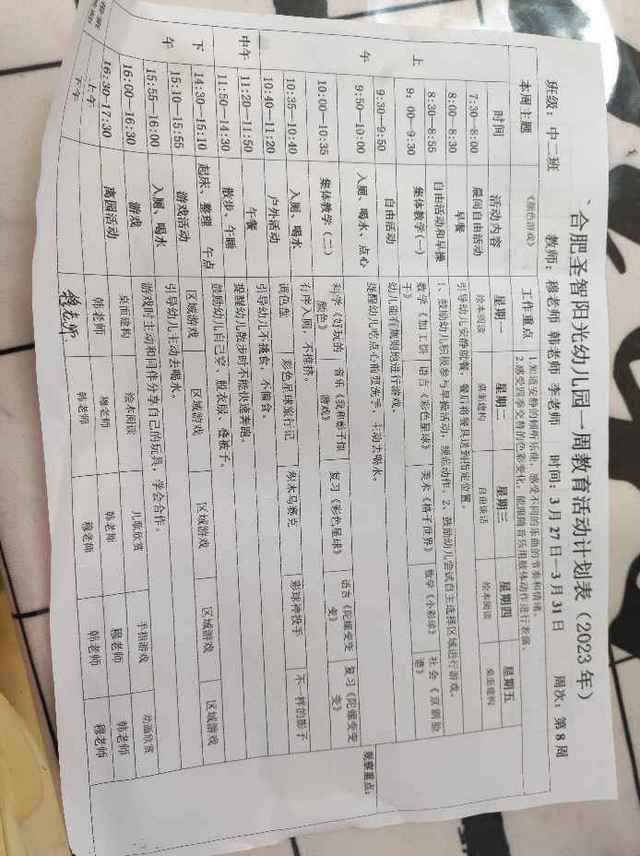 合肥圣智阳光幼儿园一周教育活动计划表（2023 年）
班级：中二班 教师：穆老师 韩老师 李老师 时间：3 月 27 日—3 月 31 日 周次：第 8 周
本周主题 《颜色游戏》 工作重点 1.知道安静的倾听乐曲，感受不同的乐曲的节奏和情绪。
2.感受四季交替的色彩变化，能跟随音乐用肢体动作进行表演。
时间 活动内容 星期一 星期二 星期三 星期四 星期五
上午
7:30—8:00 晨间自由活动 绘本阅读 桌面建构 自由谈话 绘本阅读 桌面建构
8:00—8:30 早餐 引导幼儿安静就餐，餐后将餐具送到指定位置。
8:30—8:55 自由活动和早操 1、鼓励幼儿积极参与早操活动，规范动作。2、鼓励幼儿尝试自主选择区域进行游戏。
9:00—9:30 集体教学(一) 数学《加工饼干》 语言《彩色星球》 美术《格子世界》 数学《小彩球》 社会
9:30—9:50 自由活动 幼儿能有规则地进行游戏。
9:50—10:00 入厕、喝水、点心 提醒幼儿吃点心前要洗手，主动去喝水。
10:00—10:35 集体教学（二） 科学《好玩的颜色》 音乐《我和影子做游戏》 复习《彩色星球》 语言《陀螺变变变》 复习《陀螺变变变》
10:35—10:40 入厕、喝水 有序入厕，不推挤。
10:40—11:20 户外活动 调色盘 彩色足球旅行记 积木马赛克 彩球神投手 不一样的影子
中午
11:20—11:50 午餐 引导幼儿不挑食，不偏食。
11:50—14:30 散步、午睡 提醒幼儿散步时不能快速奔跑。
下午
14:30—15:10 起床、整理 午点 鼓励幼儿自己穿、脱衣服、叠被子。
15:10—15:55 游戏活动 区域游戏 区域游戏 区域游戏 区域游戏 区域游戏
15:55—16:00 入厕、喝水 引导幼儿主动去喝水。
16:00—16:30 游戏 游戏时主动和同伴分享自己的玩具，学会合作。
桌面建构 绘本阅读 儿歌欣赏 手指游戏 动画欣赏
16:30—17:30 离园活动
上午 韩老师 穆老师 韩老师 穆老师 韩老师
下午 穆老师 韩老师 穆老师 韩老师 穆老师
观察重点：